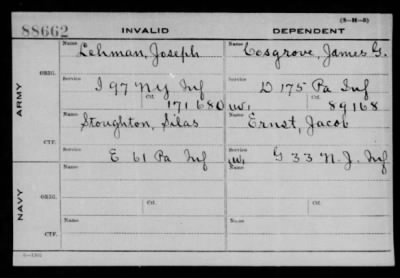 (3-H-5)
88662 INVALID DEPENDENT
Name Lehman, Joseph Name Cosgrove, James G.
ARMY
ORIG.
Service I 97 NY Inf Service D 175 Pa Inf
Ctf. 171 680 W, Ctf. 89168
Name Stoughton, Silas Name Ernst, Jacob
CTF.
Service E 61 Pa Inf Service W, G 33 N.J. Inf
NAVY
Name Name
ORIG.
Service Ctf. Service Ctf.
Name Name
CTF.
Service Service